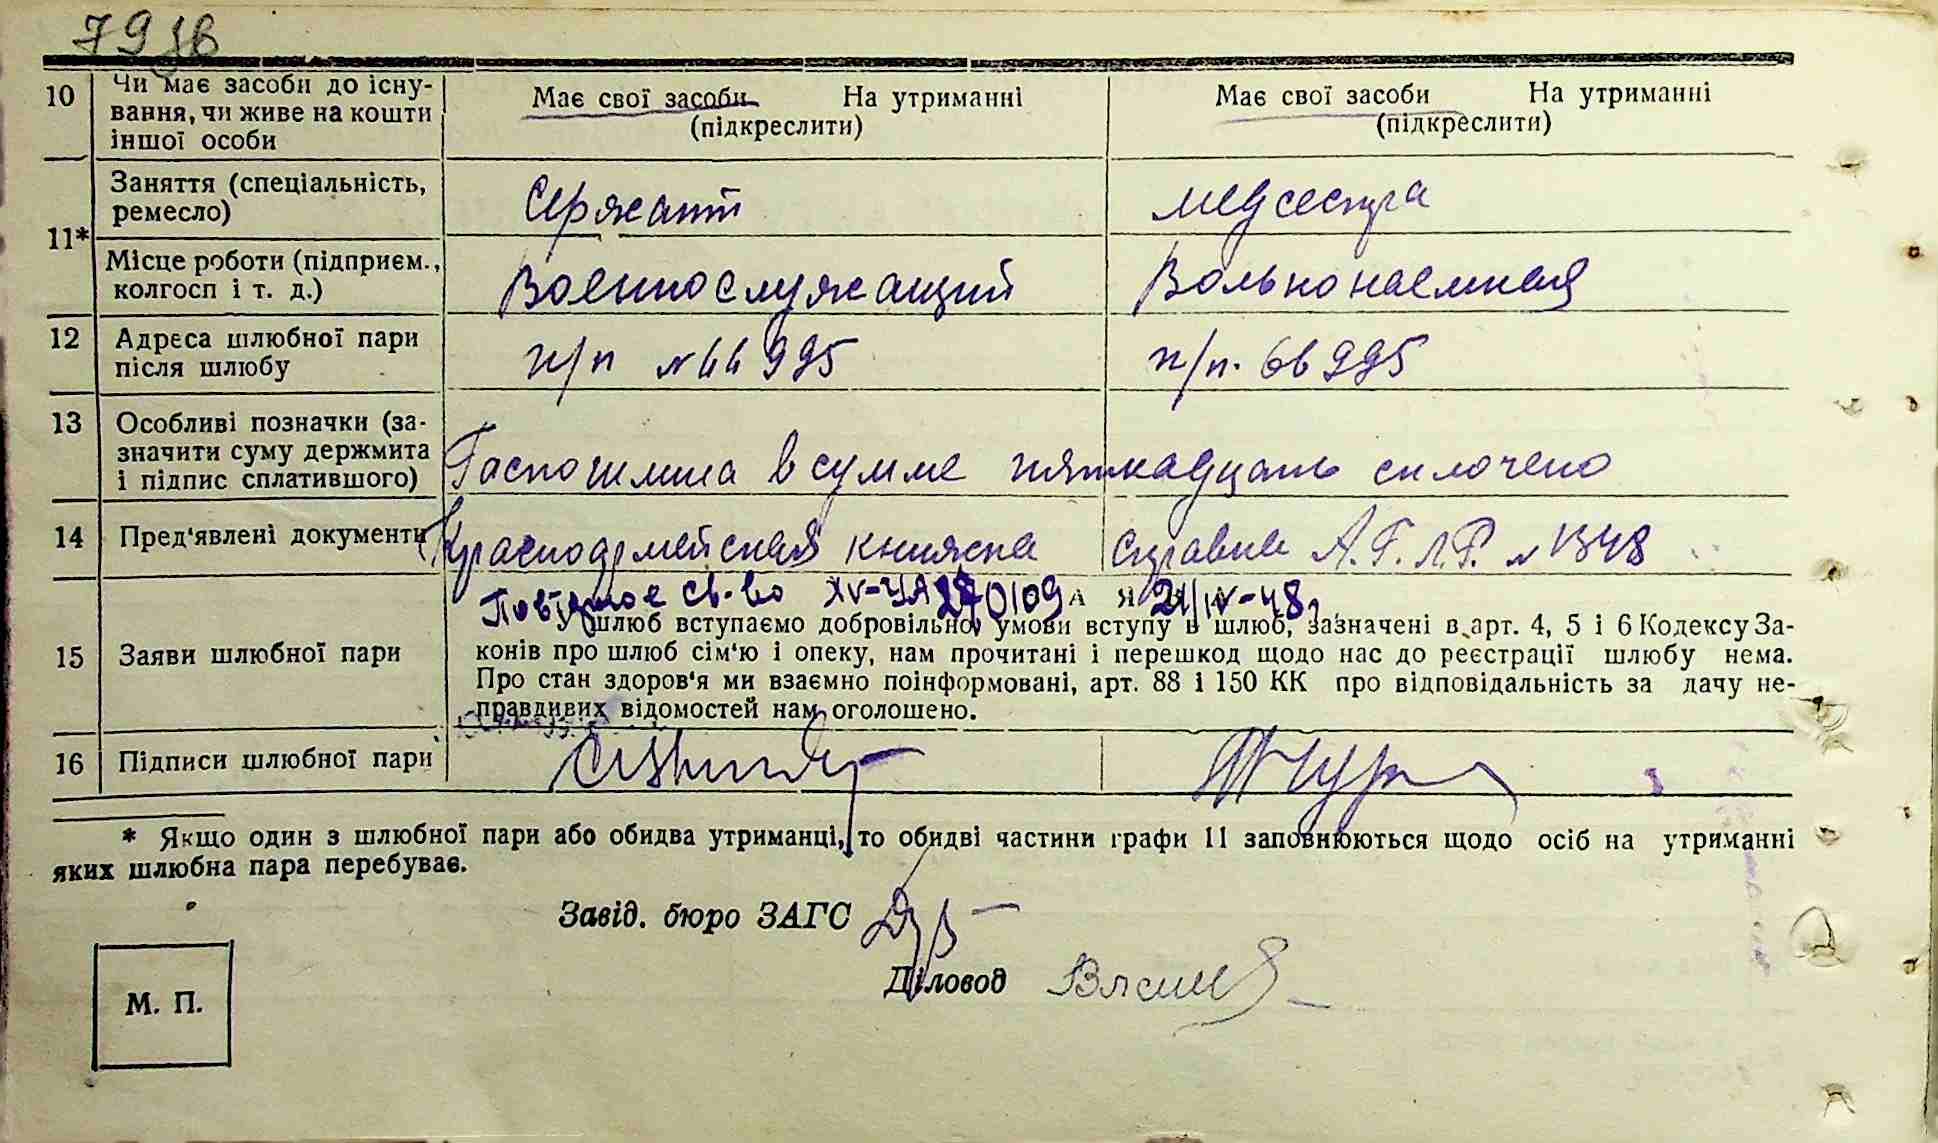 79 зв
10 Чи має засоби до існу-
вання, чи живе на кошти
іншої особи
Має свої засоби На утриманні
(підкреслити)
Має свої засоби На утриманні
(підкреслити)
11*
Заняття (спеціальність,
ремесло)
Сержант
медсестра
Місце роботи (підприєм.,
колгосп і т. д.)
Военнослужащий
Вольнонаемная
12 Адреса шлюбної пари
після шлюбу
п/п № 66995
п/п. 66995
13 Особливі позначки (за-
значити суму держмита
і підпис сплатившого)
Госпошлина в сумме пятнадцать сплочено
14 Пред'явлені документи
Красноармейская книжка
справка А.Г.Л.Р. № 1348
Повторное св-во XV-УА 270109 21/IV-48
15 Заяви шлюбної пари
У шлюб вступаємо добровільно, умови вступу в шлюб, зазначені в арт. 4, 5 і 6 Кодексу За-
конів про шлюб сім'ю і опеку, нам прочитані і перешкод щодо нас до реєстрації шлюбу нема.
Про стан здоров'я ми взаємно поінформовані, арт. 88 і 150 КК про відповідальність за дачу не-
правдивих відомостей нам оголошено.
16 Підписи шлюбної пари
* Якщо один з шлюбної пари або обидва утриманці, то обидві частини графи 11 заповнюються щодо осіб на утриманні
яких шлюбна пара перебуває.
Завід. бюро ЗАГС
Діловод
М. П.